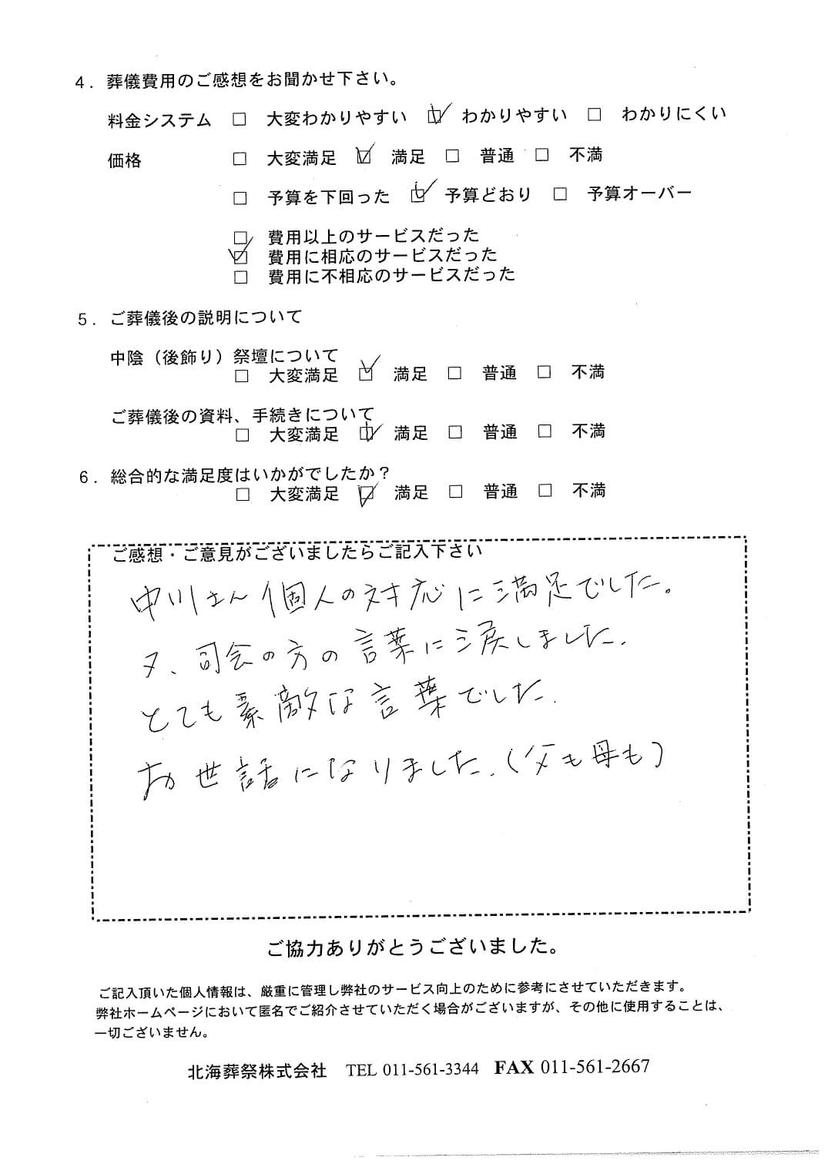 4．葬儀費用のご感想をお聞かせ下さい。
料金システム □ 大変わかりやすい ☑ わかりやすい □ わかりにくい
価格 □ 大変満足 ☑ 満足 □ 普通 □ 不満
□ 予算を下回った ☑ 予算どおり □ 予算オーバー
□ 費用以上のサービスだった
☑ 費用に相応のサービスだった
□ 費用に不相応のサービスだった
5．ご葬儀後の説明について
中陰（後飾り）祭壇について
□ 大変満足 ☑ 満足 □ 普通 □ 不満
ご葬儀後の資料、手続きについて
□ 大変満足 ☑ 満足 □ 普通 □ 不満
6．総合的な満足度はいかがでしたか？
□ 大変満足 ☑ 満足 □ 普通 □ 不満
ご感想・ご意見がございましたらご記入下さい
中川さん個人の対応に満足でした。
又、司会の方の言葉に涙しました。
とても素敵な言葉でした。
お世話になりました。（父も母も）
ご協力ありがとうございました。
ご記入頂いた個人情報は、厳重に管理し弊社のサービス向上のために参考にさせていただきます。
弊社ホームページにおいて匿名でご紹介させていただく場合がございますが、その他に使用することは、
一切ございません。
北海葬祭株式会社 TEL 011-561-3344 FAX 011-561-2667